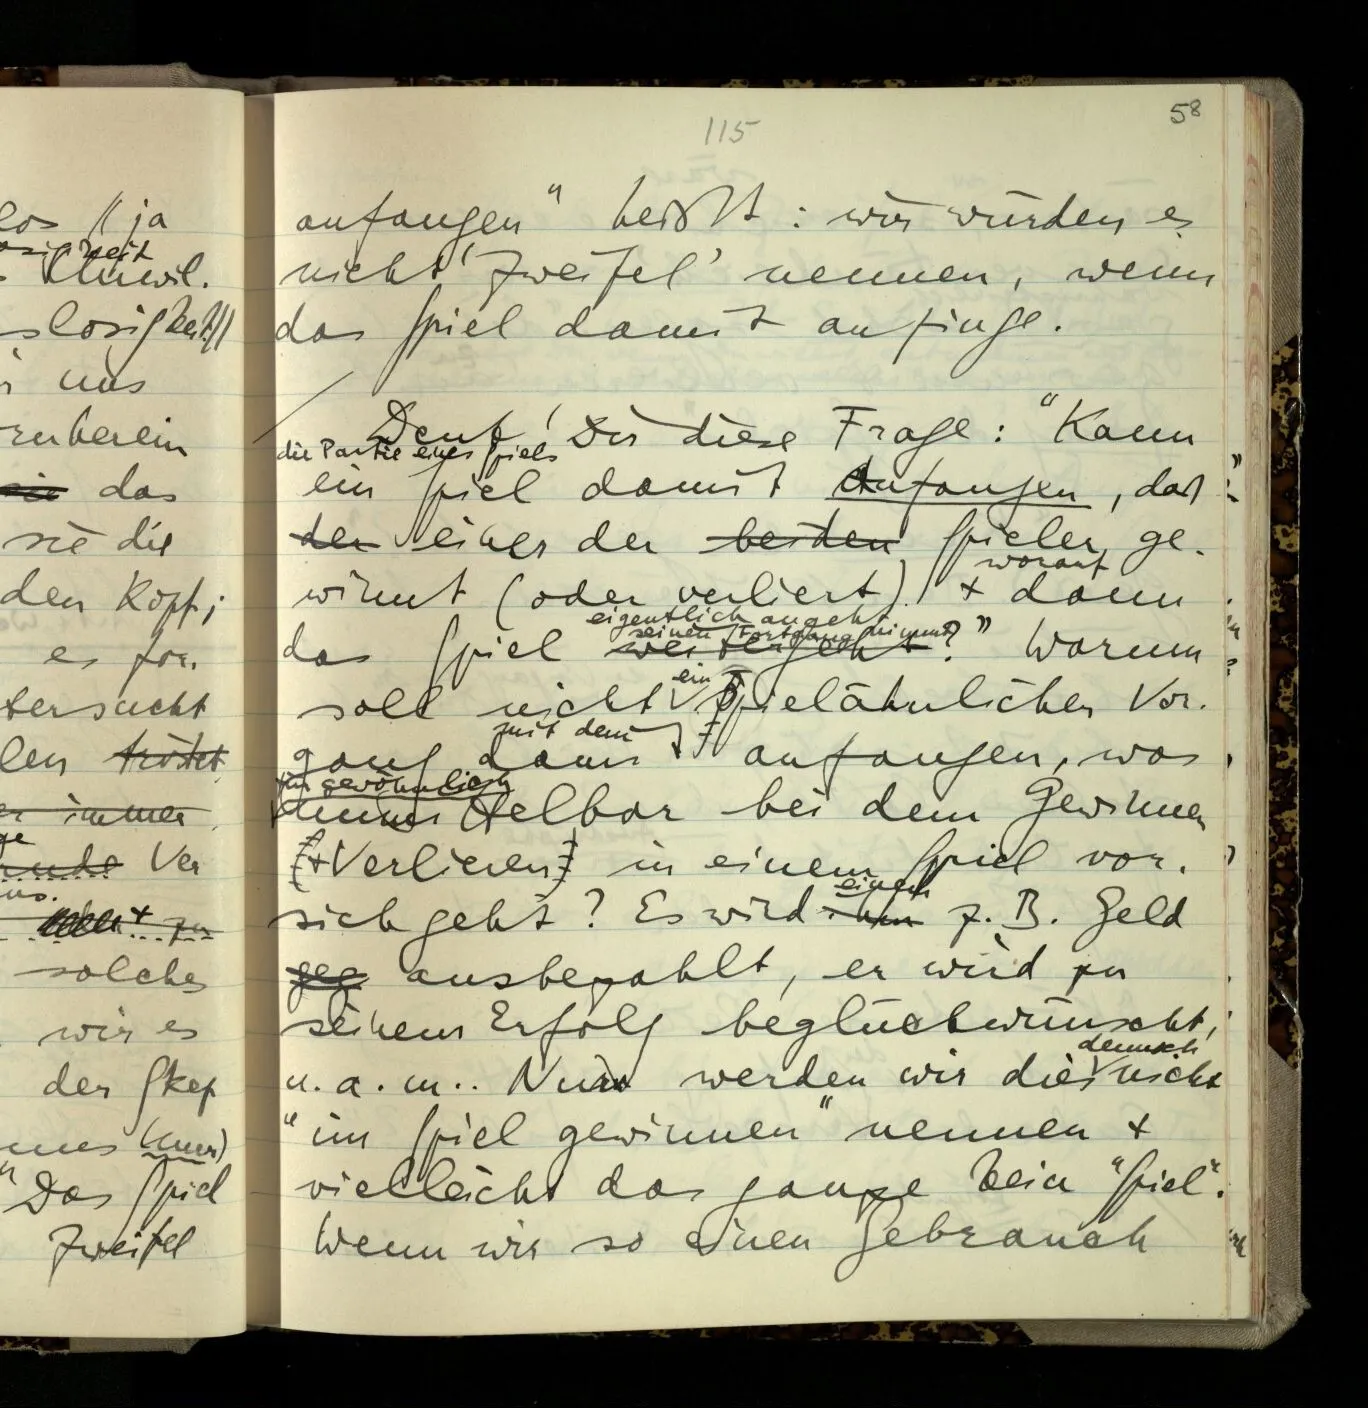 los // ja
osigkeit
Unwil.
slosigkeit //
uns
das
sie die
den Kopf;
es for.
tersucht
len tröstet
er immer
Ver
solches
wir es
der Skep
(nur)
" Das Spiel
Zweifel
115
58
anfangen" heißt: wir würden es
nicht 'Zweifel' nennen, wenn
das Spiel damit anfinge.
Denk' Dir diese Frage: "Kann
die Partie eines Spiels
ein Spiel damit anfangen, daß
den einer der beiden Spieler ge-
worauf
winnt (oder verliert) + dann
eigentlich angeht
seinen Fortgang nimmt
das Spiel weitergeht?" Warum
ein
soll nicht spielähnlicher Vor-
mit dem
gang damit anfangen, was
für gewöhnlich
unmittelbar bei dem Gewinnen
[+ Verlieren] in einem Spiel vor
sich geht? Es wird ihm z.B. Geld
einem
geg ausbezahlt, er wird zu
seinem Erfolg beglückwünscht,
dennoch
u.a.m.. Nun werden wir dies nicht
"im Spiel gewinnen" nennen +
vielleicht das ganze kein "Spiel".
Wenn wir so einen Gebrauch